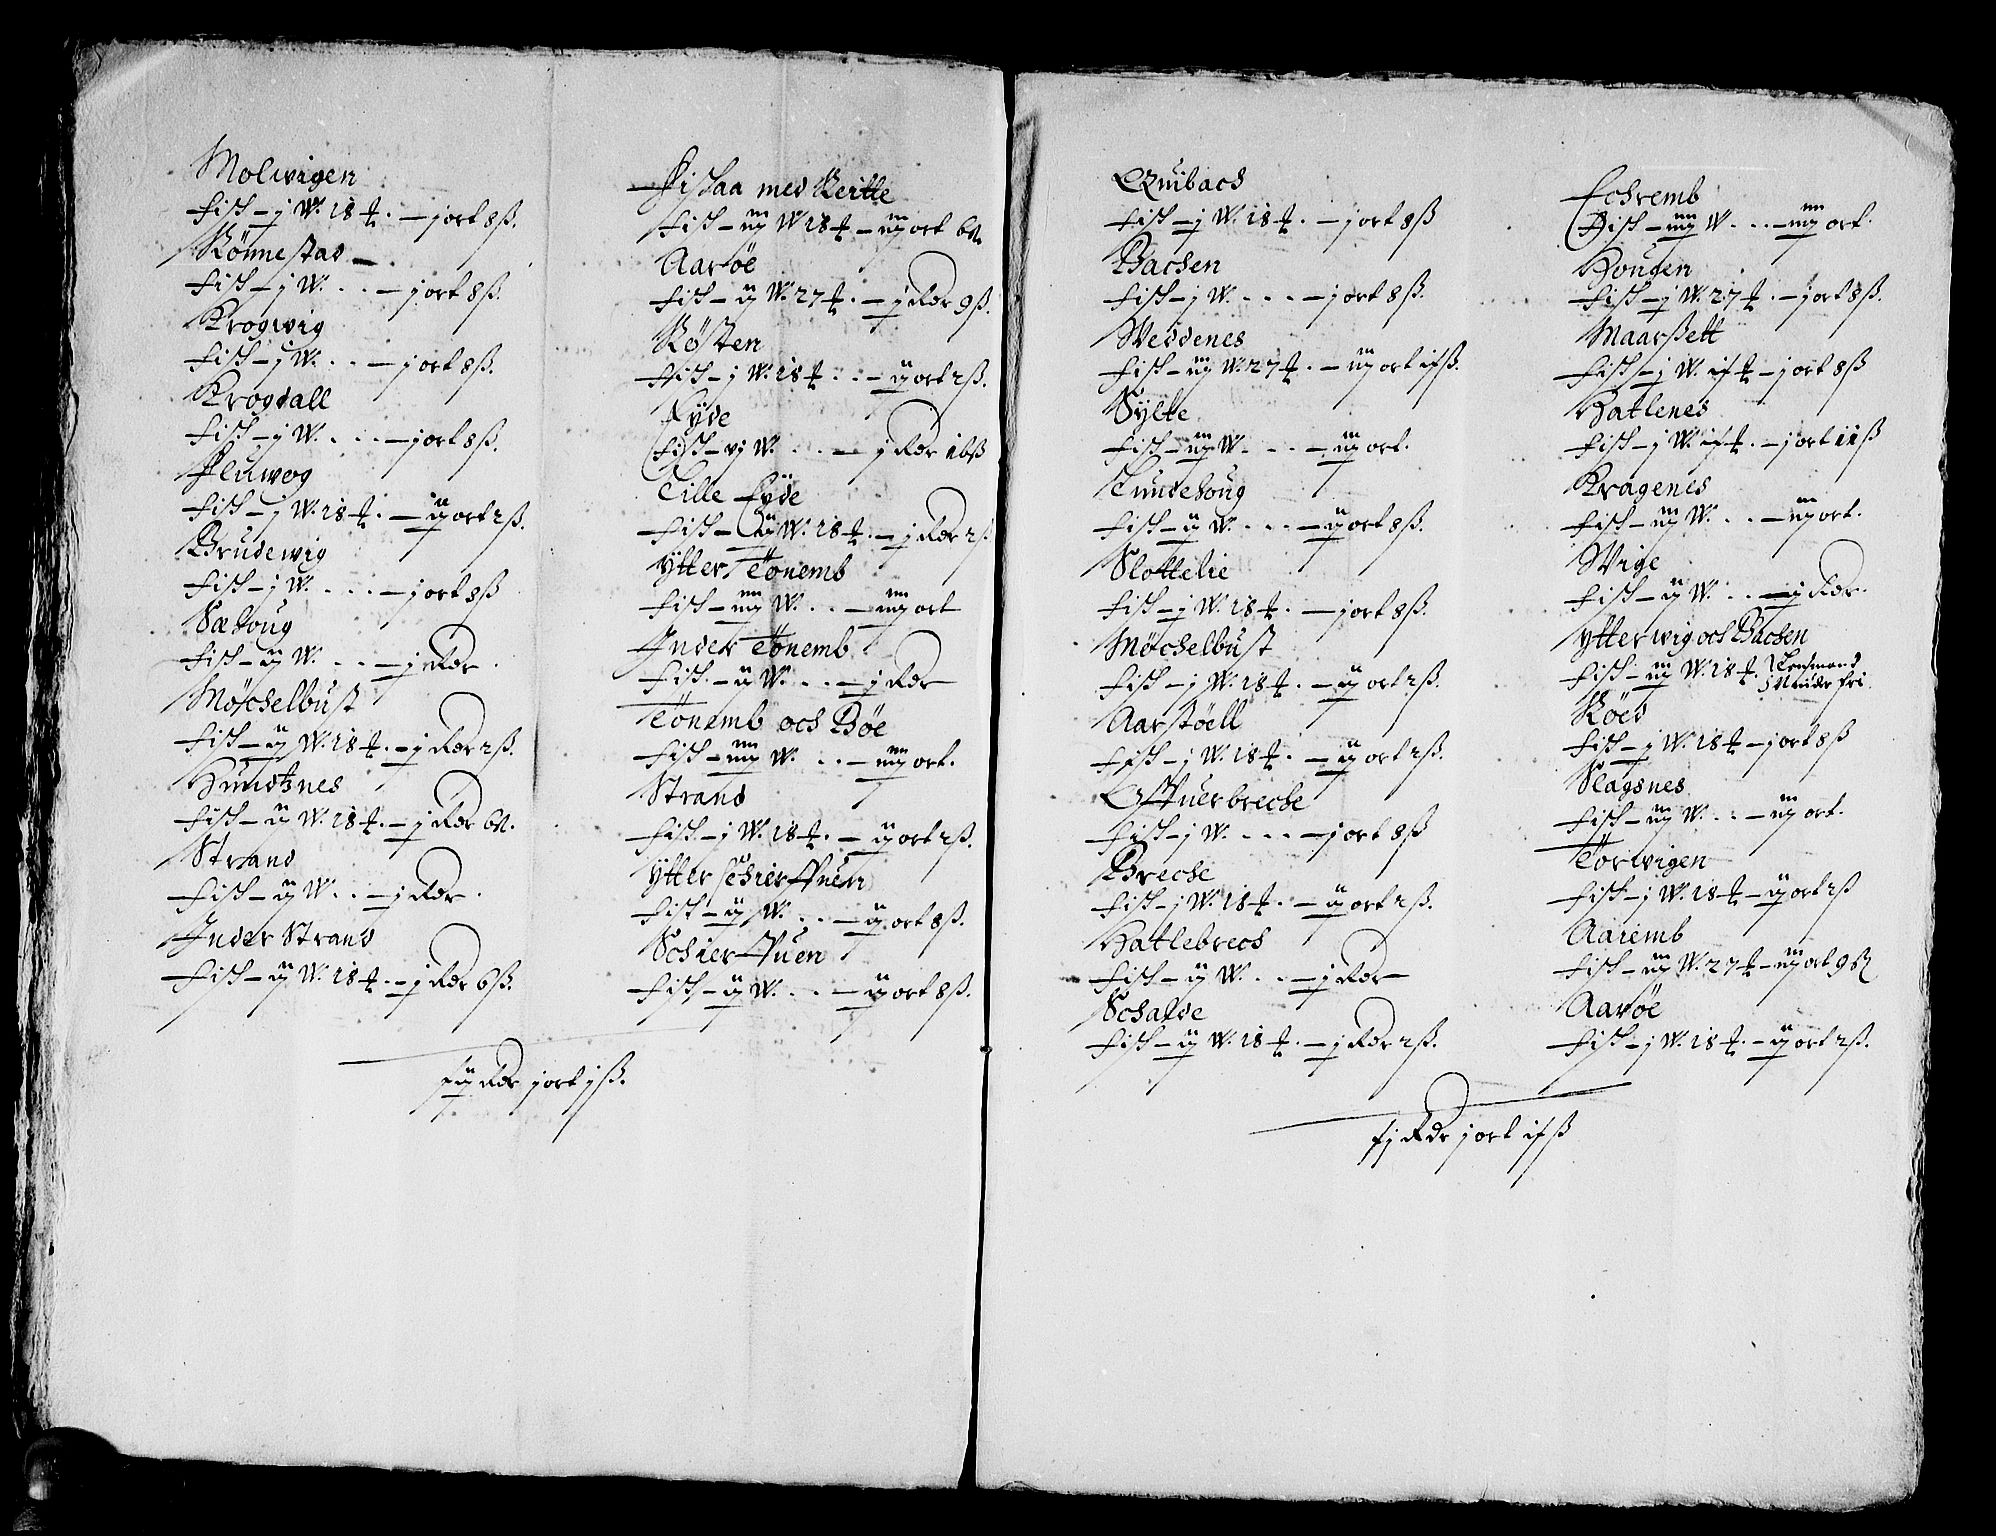 Molwigen
Fisch – j W. 18 ℔. – j ort 8 ß.
Rönnestad –
Fisch – j W. . . – j ort 8 ß.
Krogwig
Fisch – j W. . . – j ort 8 ß.
Krogdall
Fisch – j W. . . – j ort 8 ß.
Fluwog
Fisch – j W. 18 ℔. – ij ort 2 ß.
Brudewig
Fisch – j W. . . – j ort 8 ß
Sæhoug
Fisch – ij W. . . – j Rdr.
Möchelbust
Fisch – ij W. 18 ℔. – j Rdr 2 ß.
Hundznes
Fisch – ij W. 18 ℔. – j Rdr 6 ß.
Strand
Fisch – ij W. . . – j Rdr.
Inder Strand
Fisch – ij W. 18 ℔. – j Rdr 6 ß.
med Reitte
Fisch – iij W 18 ℔ – iij ort 6 ß.
Aaröe
Fisch – ij W. 27 ℔. – j Rdr 9 ß.
Rösten
Fisch – j W. 18 ℔. . – ij ort 2 ß.
Eÿde
Fisch – vj W. . . – j Rdr 16 ß
Lille Eÿde
Fisch – ij W. 18 ℔. – j Rdr 2 ß
Ytter Tönemb
Fisch – iiij W. . . – iiij ort
Inder Tönemb
Fisch – ij W. . . – j Rdr
Tönemb och Böe
Fisch – iiij W. . . – iiij ort.
Strand
Fisch – j W. 18 ℔. – ij ort 2 ß.
Ytter Schieruen
Fisch – ij W. . . – ij ort 8 ß.
Schieruen
Fisch – ij W. . . – ij ort 8 ß.
Rdr j ort j ß.
Quibach
Fisch – j W. 18 ℔. – j ort 8 ß
Bachen
Fisch – j W. . . – j ort 8 ß.
Weddenes
Fisch – iij W. 27 ℔. – iij ort 15 ß.
Sylte
Fisch – iij W. . . – iij ort.
Tundehoug
Fisch – ij W. . . – ij ort 8 ß.
Slottelie
Fisch – j W. 18 ℔. – j ort 8 ß.
Möchelbust
Fisch – j W. 18 ℔. – ij ort 2 ß.
Aarstöell
Fisch – j W. 18 ℔. – ij ort 2 ß.
Offuerbreche
Fisch – j W. . . – j ort 8 ß
Breche
Fisch – j W. 18 ℔. – ij ort 2 ß.
Hatlebrech
Fisch – ij W. . . – j Rdr
Schalde
Fisch – ij W. 18 ℔. – j Rdr 2 ß.
Echremb
Fisch – iiij W. . . – iiij ort.
Hougen
Fisch – j W. 27 ℔. – j ort 8 ß.
Maarßett
Fisch – j W. 15 ℔ – j ort 8 ß
Hatlenes
Fisch – j W. 15 ℔. – j ort 11 ß
Kragenes
Fisch – iij W. . . – iij ort.
Wige
Fisch – ij W. . . – j Rdr.
Ytterwig och Bachen
Fisch – iij W. 18 ℔. Lensmand
fri
Röed
Fisch – j W. 18 ℔ – j ort 8 ß
Slagsnes
Fisch – iij W. . . – iij ort.
Törwigen
Fisch – j W. 18 ℔ – ij ort 2 ß
Aaremb
Fisch – iij W. 27 ℔ – iij ort 9 ß
Aaröe
Fisch – j W. 18 ℔. – ij ort 2 ß.
Rdr j ort 15 ß